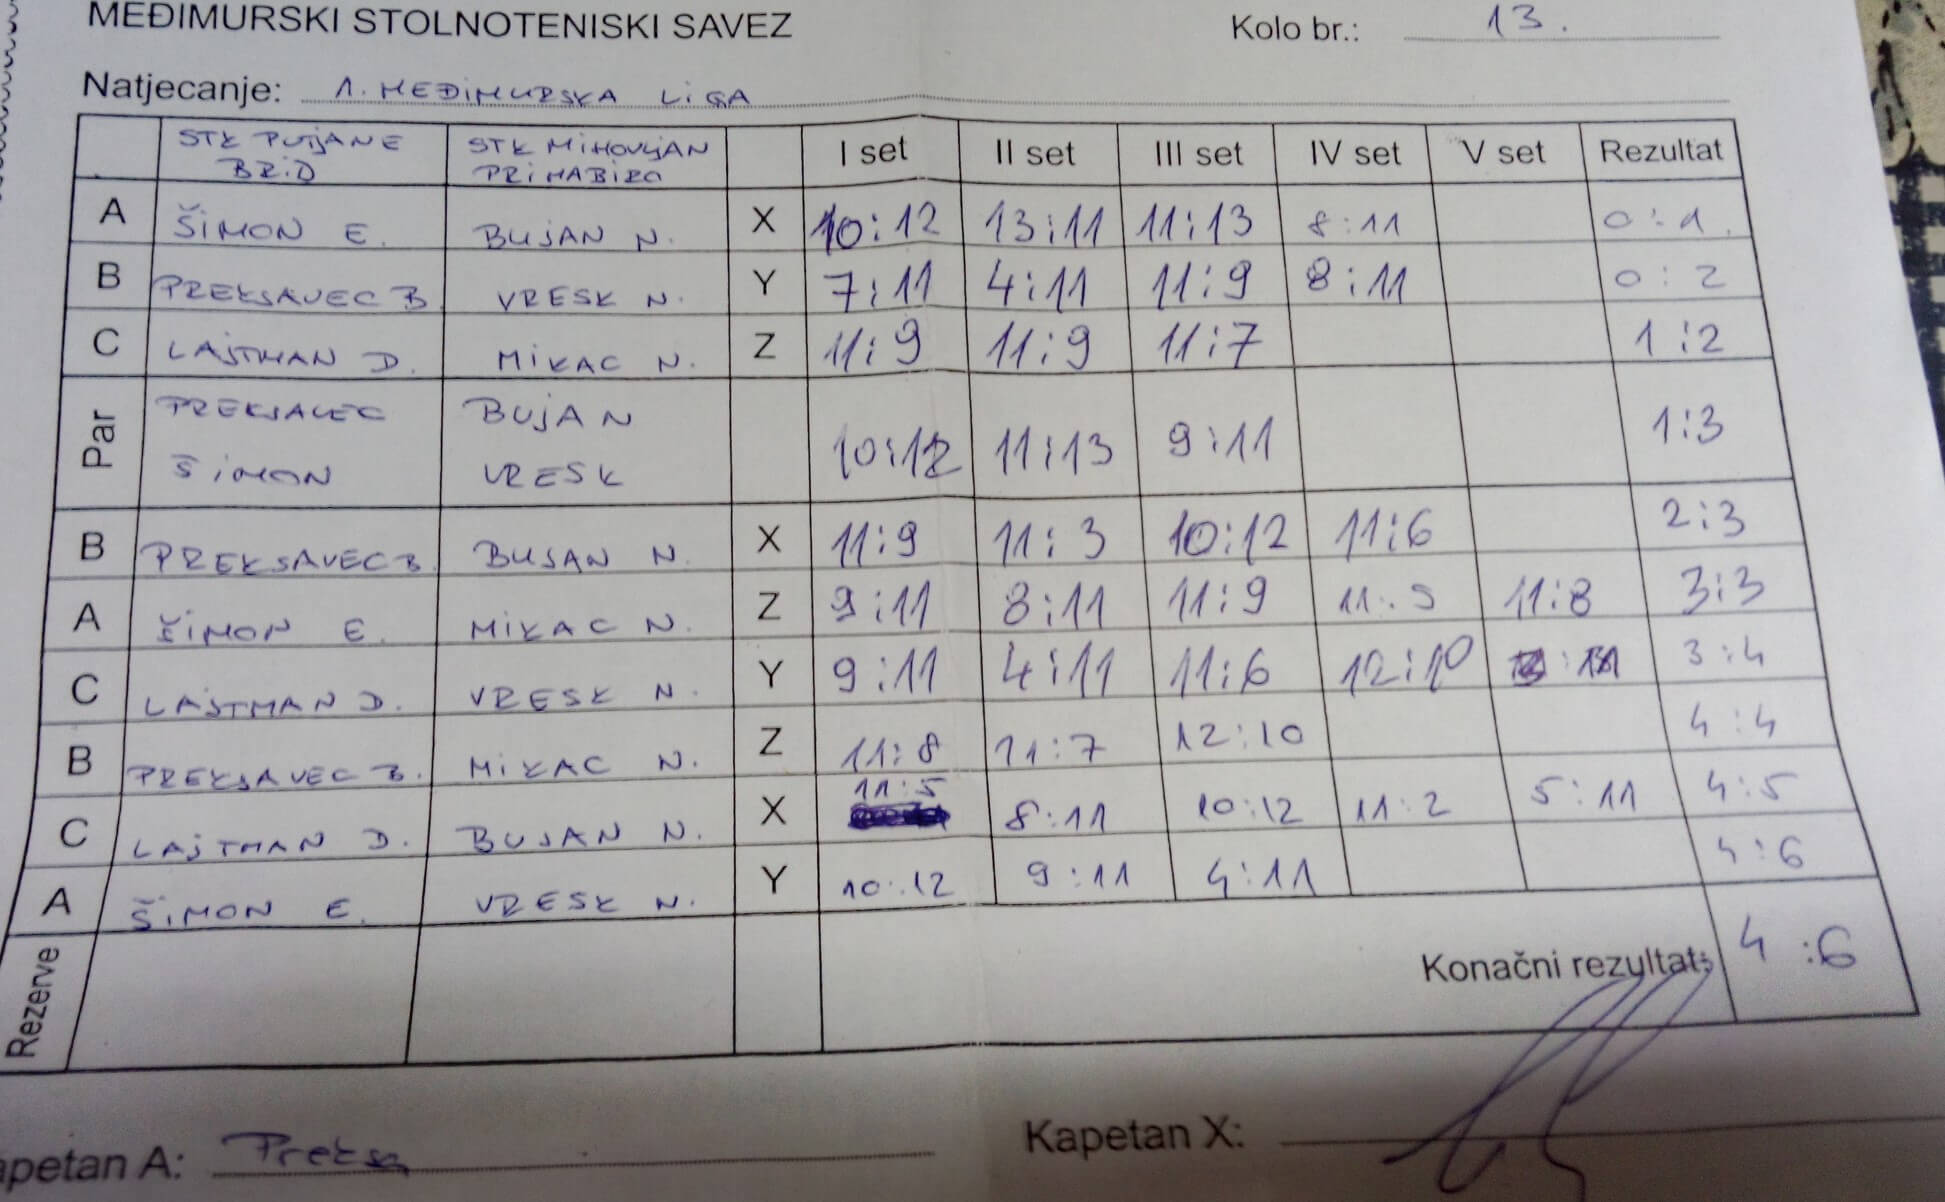 MEĐIMURSKI STOLNOTENISKI SAVEZ Kolo br.: 13.
Natjecanje: 1. MEĐIMURSKA LIGA
STK PUŠĆANE BRID STK MIHOVLJAN PRIMABIRO I set II set III set IV set V set Rezultat
A ŠIMON E. BUJAN N. X 10:12 13:11 11:13 8:11 0:1
B PREKSAVEC B. VRESK N. Y 7:11 4:11 11:9 8:11 0:2
C LAJTMAN D. MIKAC N. Z 11:9 11:9 11:7 1:2
Par PREKSAVEC ŠIMON BUJAN VRESK 10:12 11:13 9:11 1:3
B PREKSAVEC B. BUJAN N. X 11:9 11:3 10:12 11:6 2:3
A ŠIMON E. MIKAC N. Z 9:11 8:11 11:9 11:5 11:8 3:3
C LAJTMAN D. VRESK N. Y 9:11 4:11 11:6 12:10 3:4
B PREKSAVEC B. MIKAC N. Z 11:8 11:7 12:10 4:4
C LAJTMAN D. BUJAN N. X 11:5 8:11 10:12 11:2 5:11 4:5
A ŠIMON E. VRESK N. Y 10:12 9:11 4:11 4:6
Rezerve Konačni rezultat: 4:6
apetan A: Preksa Kapetan X: